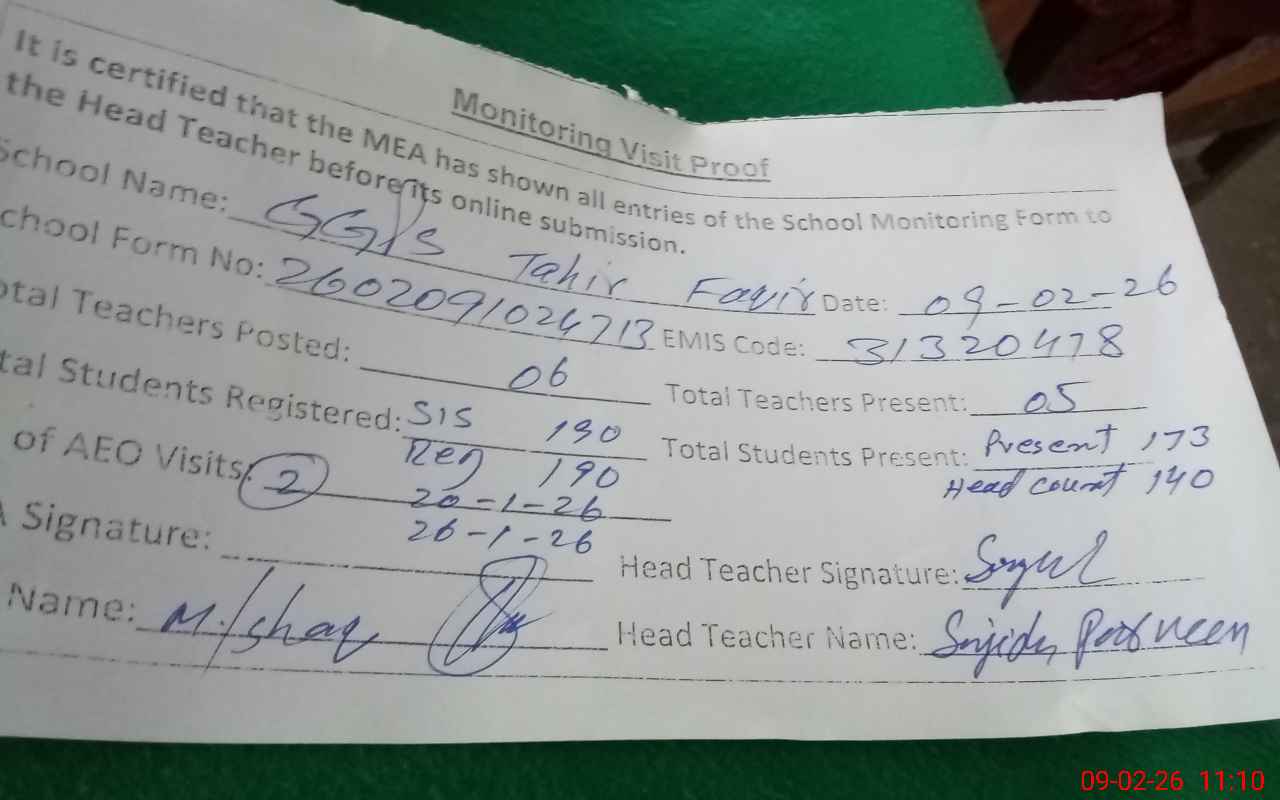 Monitoring Visit Proof
It is certified that the MEA has shown all entries of the School Monitoring Form to
the Head Teacher before its online submission.
School Name: GGPS Tahir Faqir Date: 09-02-26
chool Form No: 2602091024713 EMIS Code: 31320478
otal Teachers Posted: 06 Total Teachers Present: 05
tal Students Registered: SIS 190 Total Students Present: Present 173
Reg 190 Head count 140
of AEO Visits: 2 20-1-26
26-1-26
A Signature: Head Teacher Signature:
Name: M. Ishaq Head Teacher Name: Sajida Parveen
09-02-26 11:10